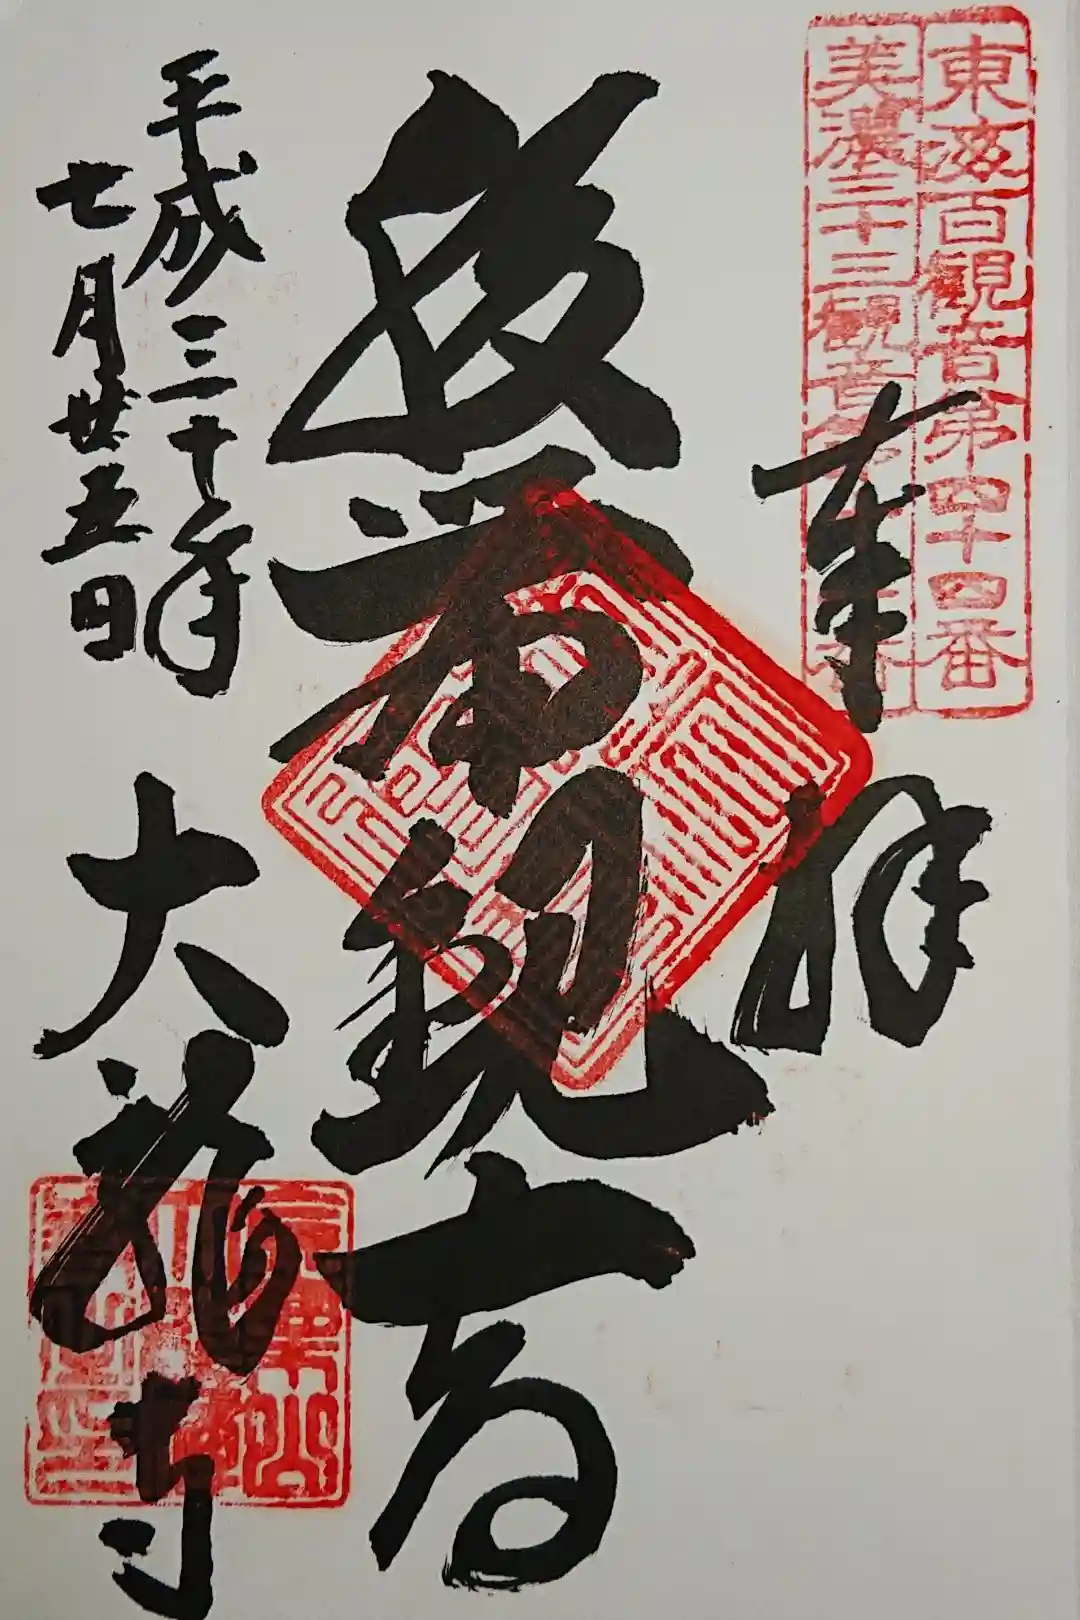 東海百観音第四十四番
美濃三十三観音
奉拝
腹帯観音
平成三十年
七月廿五日
大龍寺